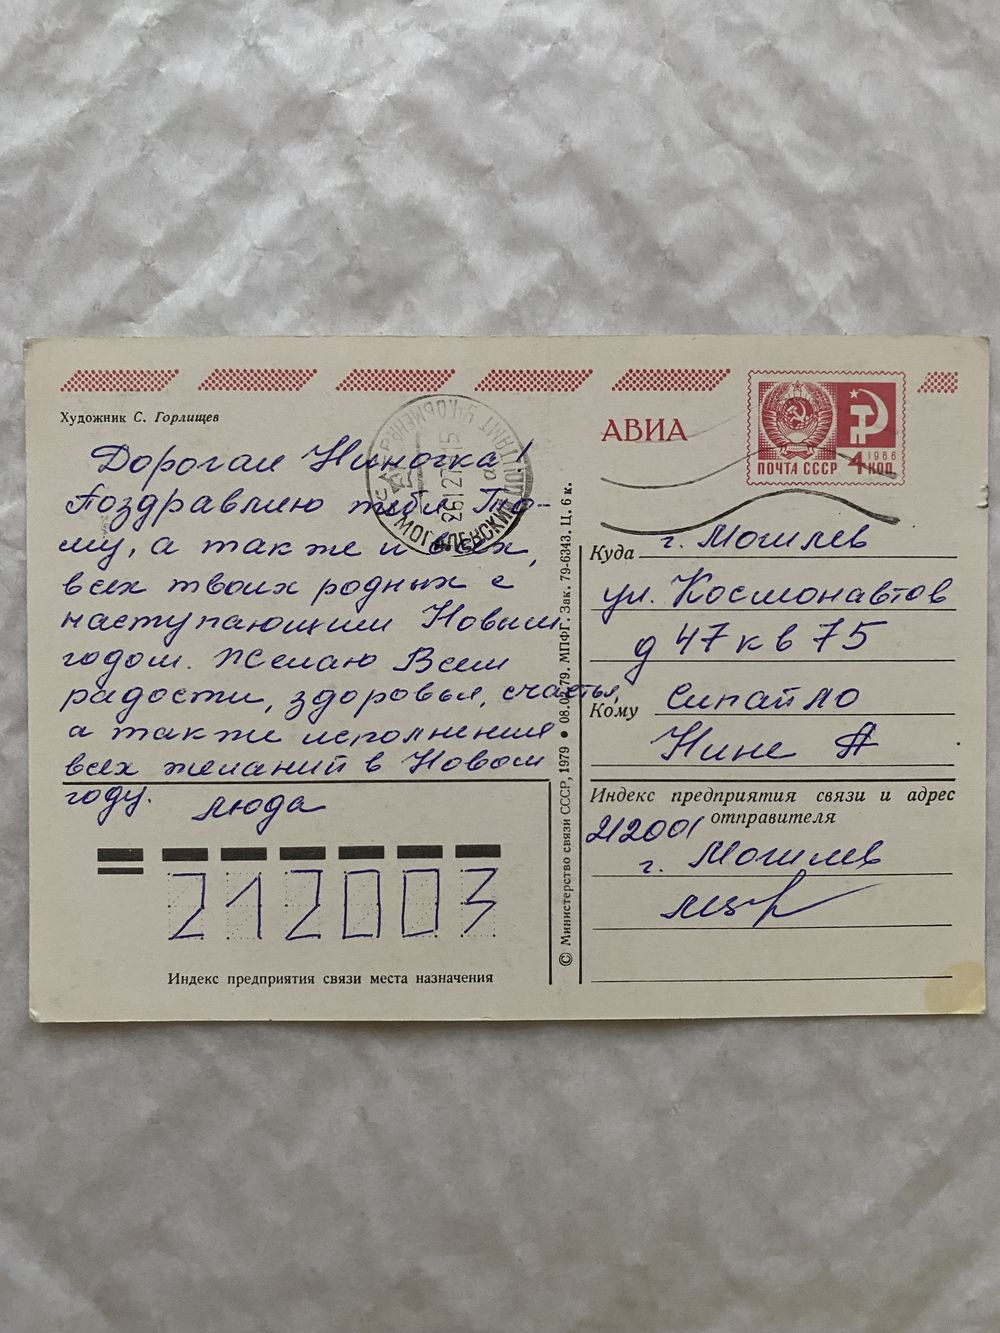 Художник С. Горлищев
АВИА
ПОЧТА СССР
1966
4 КОП
Дорогая Ниночка!
Поздравляю тебя, То-
му, а также и всех,
всех твоих родных с
наступающим Новым
годом. Желаю Всем
радости, здоровья, счастья,
а также исполнения
всех желаний в Новом
году. Люда
212003
Индекс предприятия связи места назначения
© Министерство связи СССР, 1979 • 08.02.79. МПФГ. Зак. 79-6343. Ц. 6 к.
Куда г. Могилев
ул. Космонавтов
д 47 кв 75
Кому Сипайло
Нине А
Индекс предприятия связи и адрес
отправителя
212001
г. Могилев